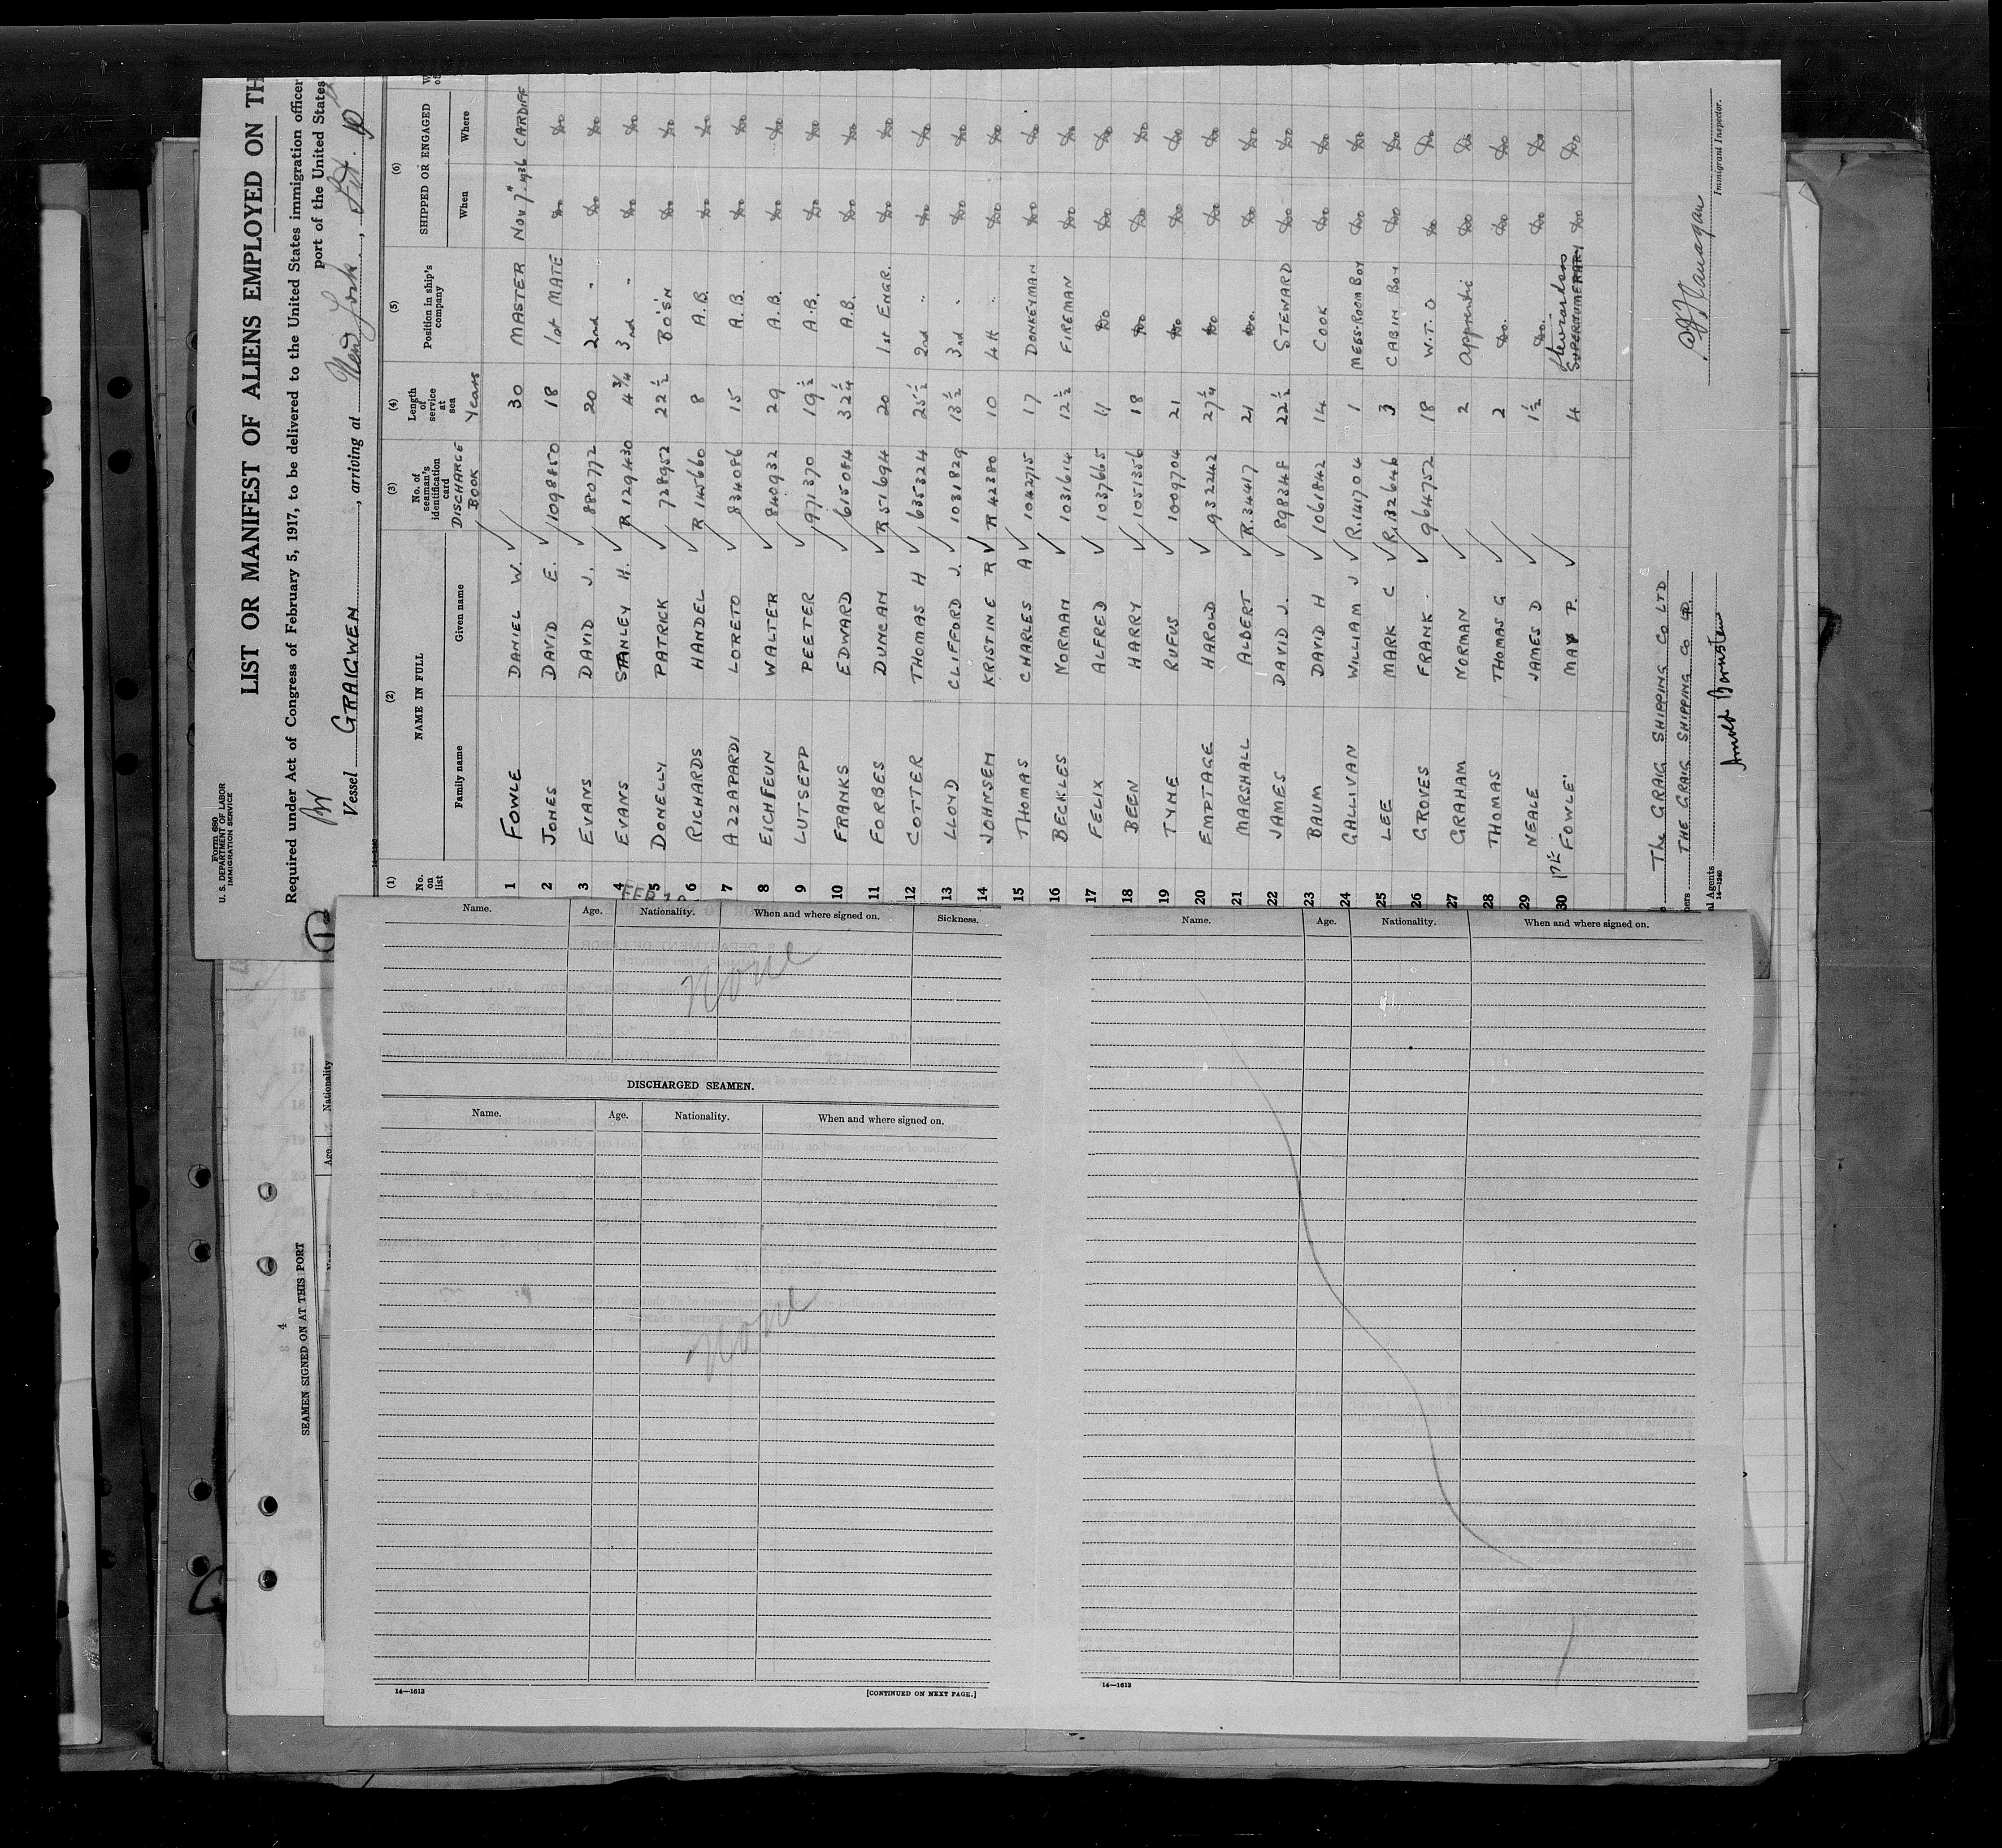 Form 680
U. S. DEPARTMENT OF LABOR
IMMIGRATION SERVICE
LIST OR MANIFEST OF ALIENS EMPLOYED ON TH
Required under Act of Congress of February 5, 1917, to be delivered to the United States immigration officer
port of the United States
Vessel GRAIGWEN, arriving at New York,
(1) (2) (3) (4) (5) (6)
No. on list NAME IN FULL No. of seaman's identification card Length of service at sea Position in ship's company SHIPPED OR ENGAGED
Family name Given name DISCHARGE BOOK Years When Where
1 FOWLE DANIEL W. 30 MASTER Nov 7" 1936 CARDIFF
2 JONES DAVID E. 1098850 18 1st MATE Do Do
3 EVANS DAVID J. 880772 20 2nd " Do Do
4 EVANS STANLEY H. R 129430 4 3/4 3rd " Do Do
5 DONELLY PATRICK 728952 22 1/2 BO'SN Do Do
6 RICHARDS HANDEL R 145660 8 A.B. Do Do
7 AZZAPARDI LORETO 834086 15 A.B. Do Do
8 EICHFEUN WALTER 840932 29 A.B. Do Do
9 LUTSEPP PEETER 971370 19 1/2 A.B. Do Do
10 FRANKS EDWARD 615084 32 1/4 A.B. Do Do
11 FORBES DUNCAN R 51694 20 1st ENGR. Do Do
12 COTTER THOMAS H 635324 25 1/2 2nd " Do Do
13 LLOYD CLIFFORD J. 1031829 13 1/2 3rd " Do Do
14 JOHNSEN KRISTINE R R 42380 10 4th " Do Do
15 THOMAS CHARLES A 1042715 17 DONKEYMAN Do Do
16 BECKLES NORMAN 1031614 12 1/2 FIREMAN Do Do
17 FELIX ALFRED 1037665 11 Do Do Do
18 BEEN HARRY 1051356 18 Do Do Do
19 TYNE RUFUS 1009704 21 Do Do Do
20 EMPTAGE HAROLD 932242 27 1/4 Do Do Do
21 MARSHALL ALBERT R.34417 21 Do Do Do
22 JAMES DAVID J. 898348 22 1/2 STEWARD Do Do
23 BAUM DAVID H 1061842 14 COOK Do Do
24 GALLIVAN WILLIAM J R.141704 1 MESS-ROOM BOY Do Do
25 LEE MARK C R.132646 3 CABIN BOY Do Do
26 GROVES FRANK 964752 18 W.T.O Do Do
27 GRAHAM NORMAN 2 Apprentic Do Do
28 THOMAS THOMAS G 2 Do. Do Do
29 NEALE JAMES D 1 1/2 Do. Do Do
30 FOWLE MAY P. 4 Stewardess SUPERNUMERARY Do Do
The GRAIG SHIPPING Co LTD
ners THE GRAIG SHIPPING Co LTD.
al Agents Arnold Bernstein
14—1240
Immigrant Inspector.
FEB
Name. Age. Nationality. When and where signed on. Sickness.
None
DISCHARGED SEAMEN.
Name. Age. Nationality. When and where signed on.
None
14—1613 [CONTINUED ON NEXT PAGE.]
Name. Age. Nationality. When and where signed on.
14—1613
4
SEAMEN SIGNED ON AT THIS PORT
Age Nationality